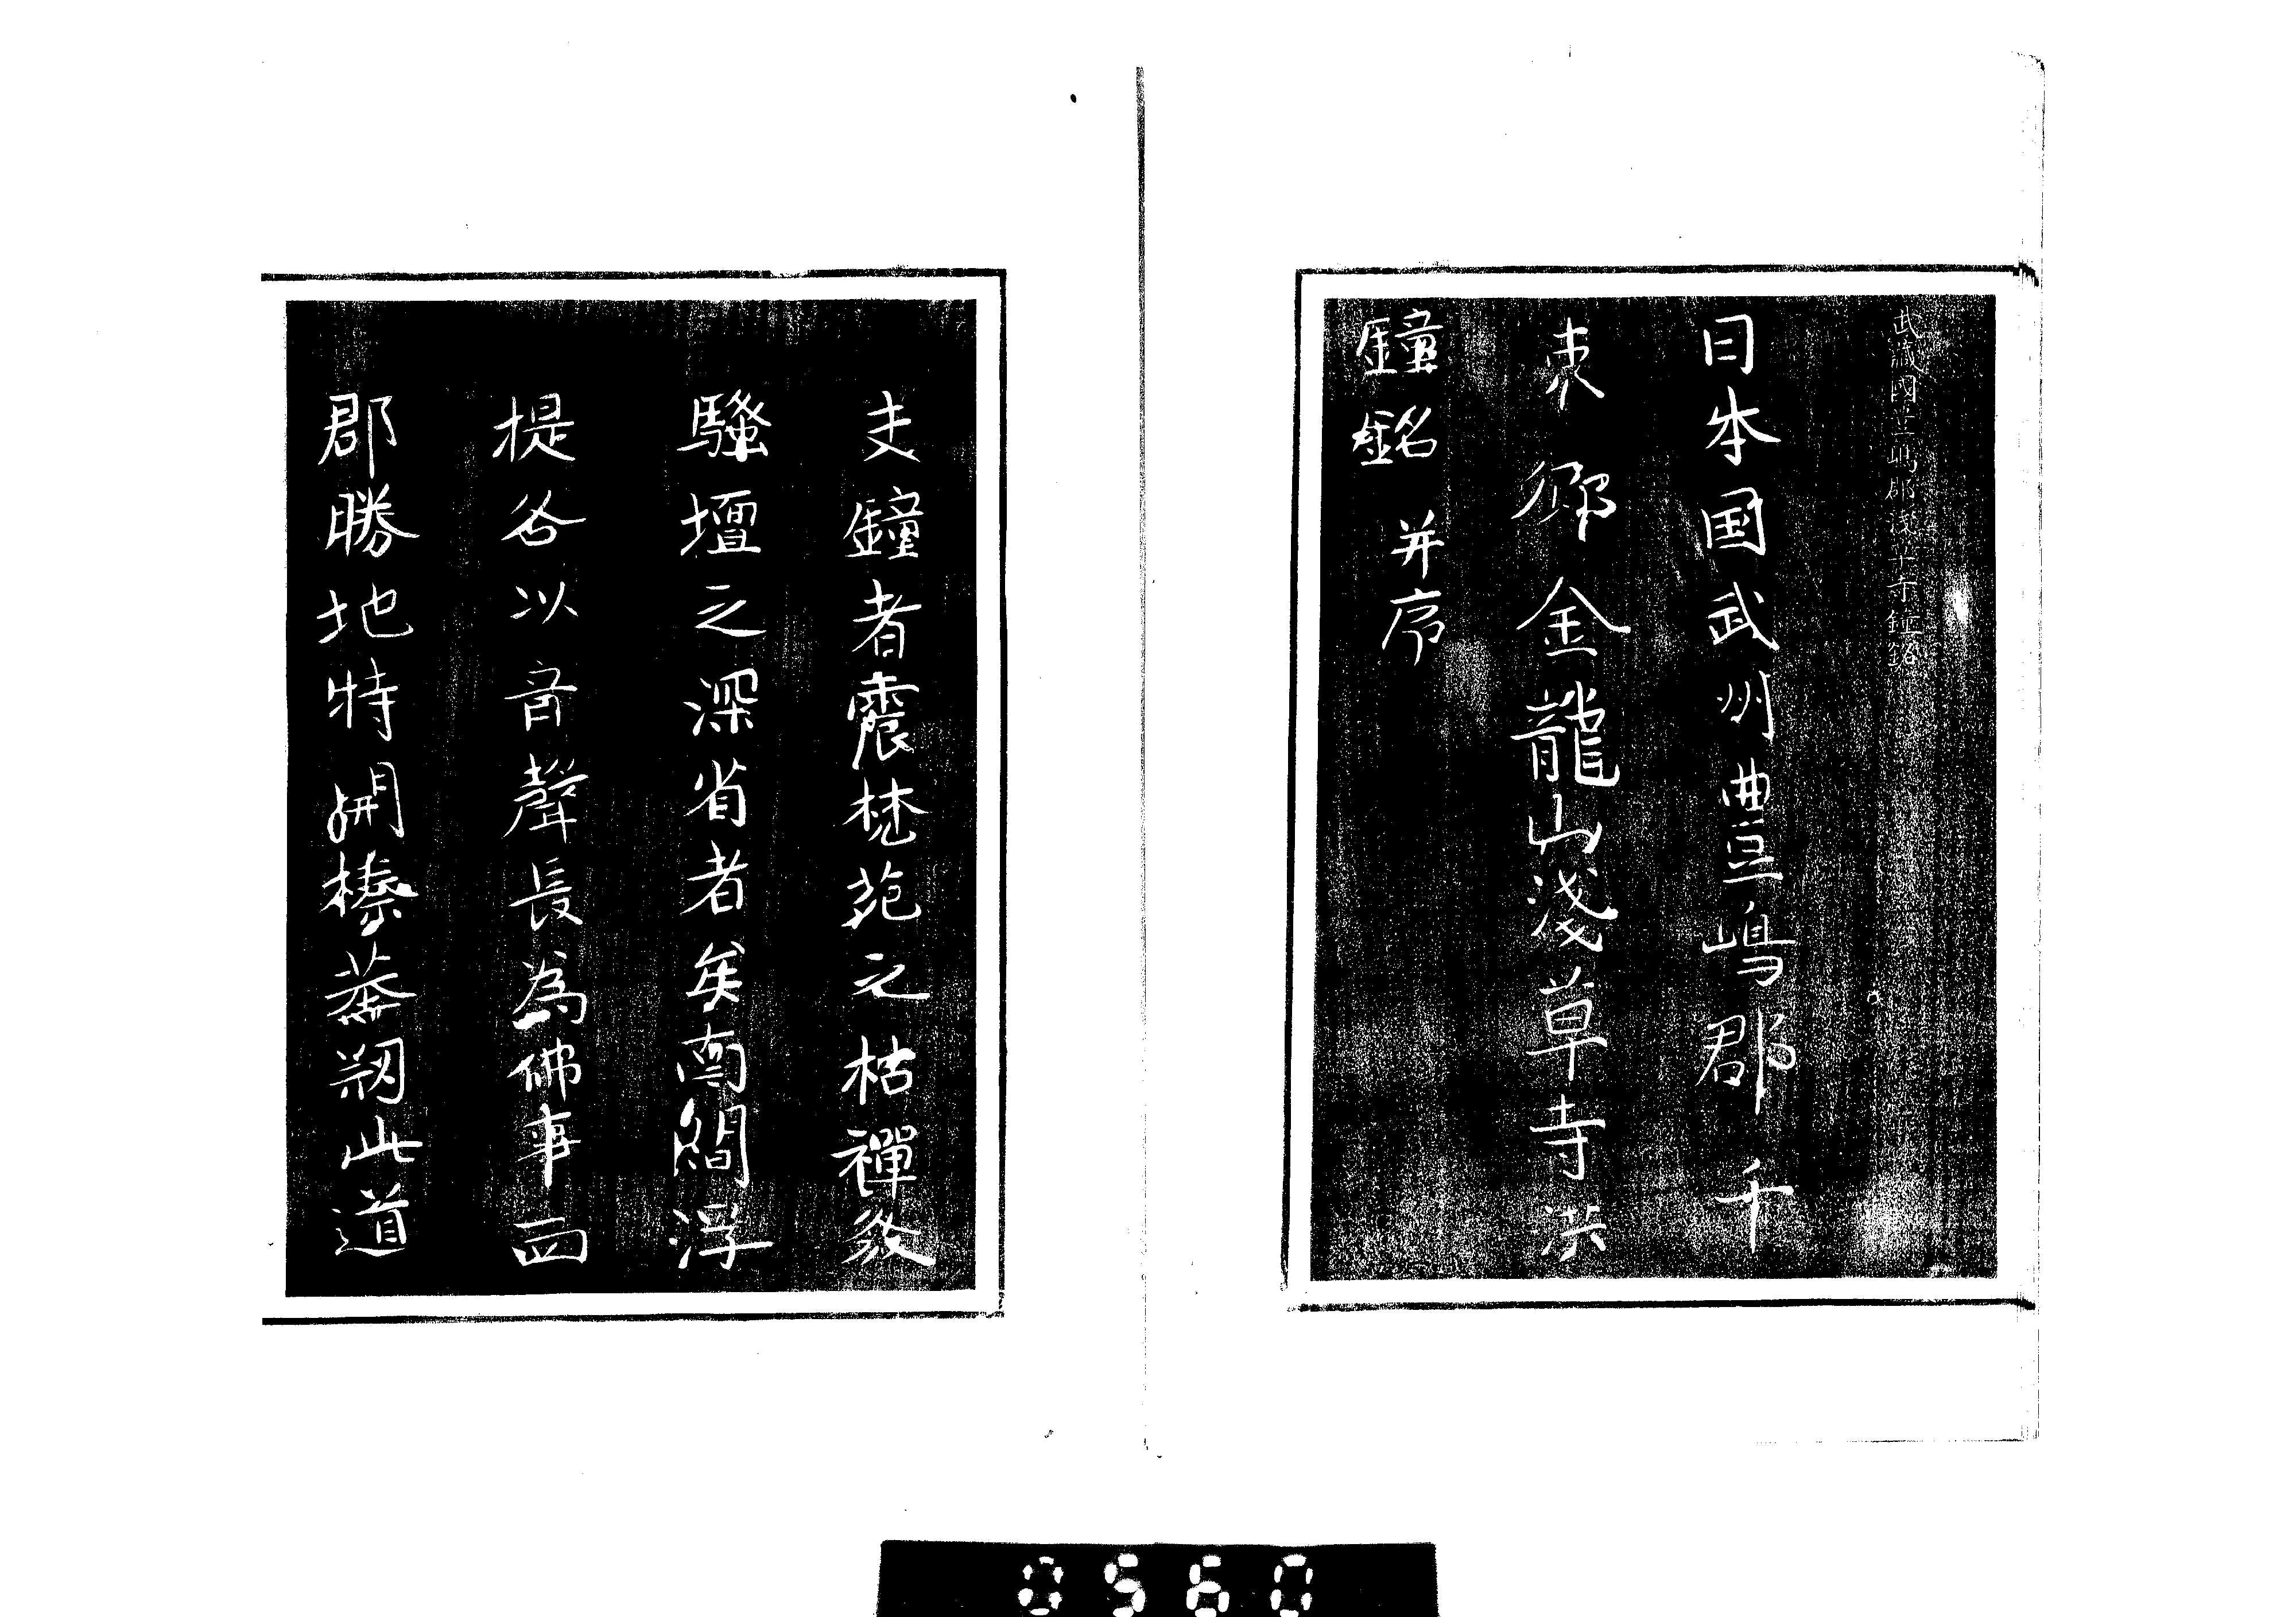 武藏國豊嶋郡淺草寺鐘銘
日本国武州豊嶋郡千
束郷金龍山淺草寺洪
鐘銘 并序
夫鐘者震梵苑之枯禪發
騷壇之深省者矣南閻浮
提各以音聲長為佛事而
郡勝地特開榛莽剏此道
0560